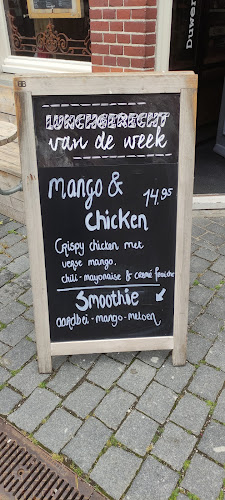 LUNCHGERECHT
van de week
Mango &
Chicken
14,95
Crispy chicken met
verse mango,
chili-mayonaise & cremé fraîche
Smoothie
aardbei-mango-meloen
Duwen